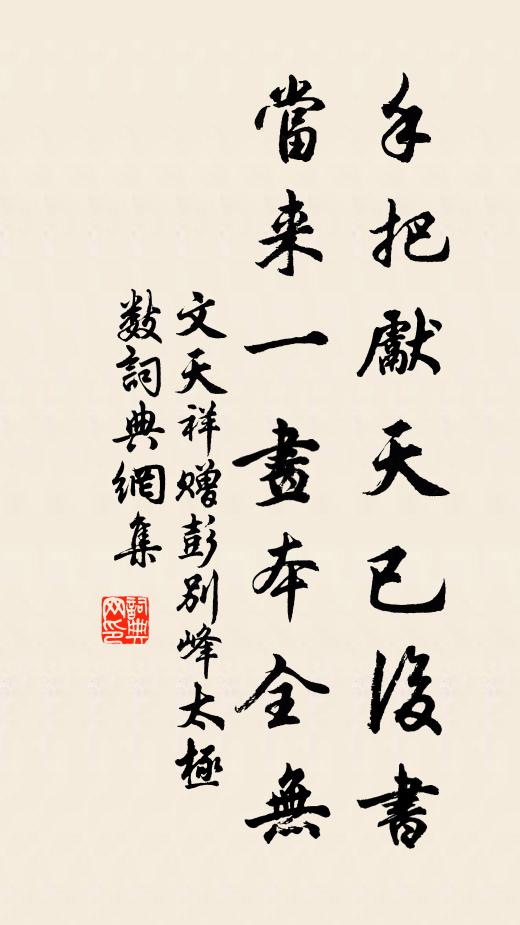 手把獻天已後書
當来一畫本全無
文天祥贈彭別峰太極
數詞典網集
詞典网印